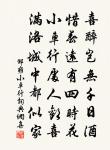 喜醉豈無千日酒
惜春遂有四時花
小車行處人歡喜
滿洛城中都似家
邵雍小車行詞典網書